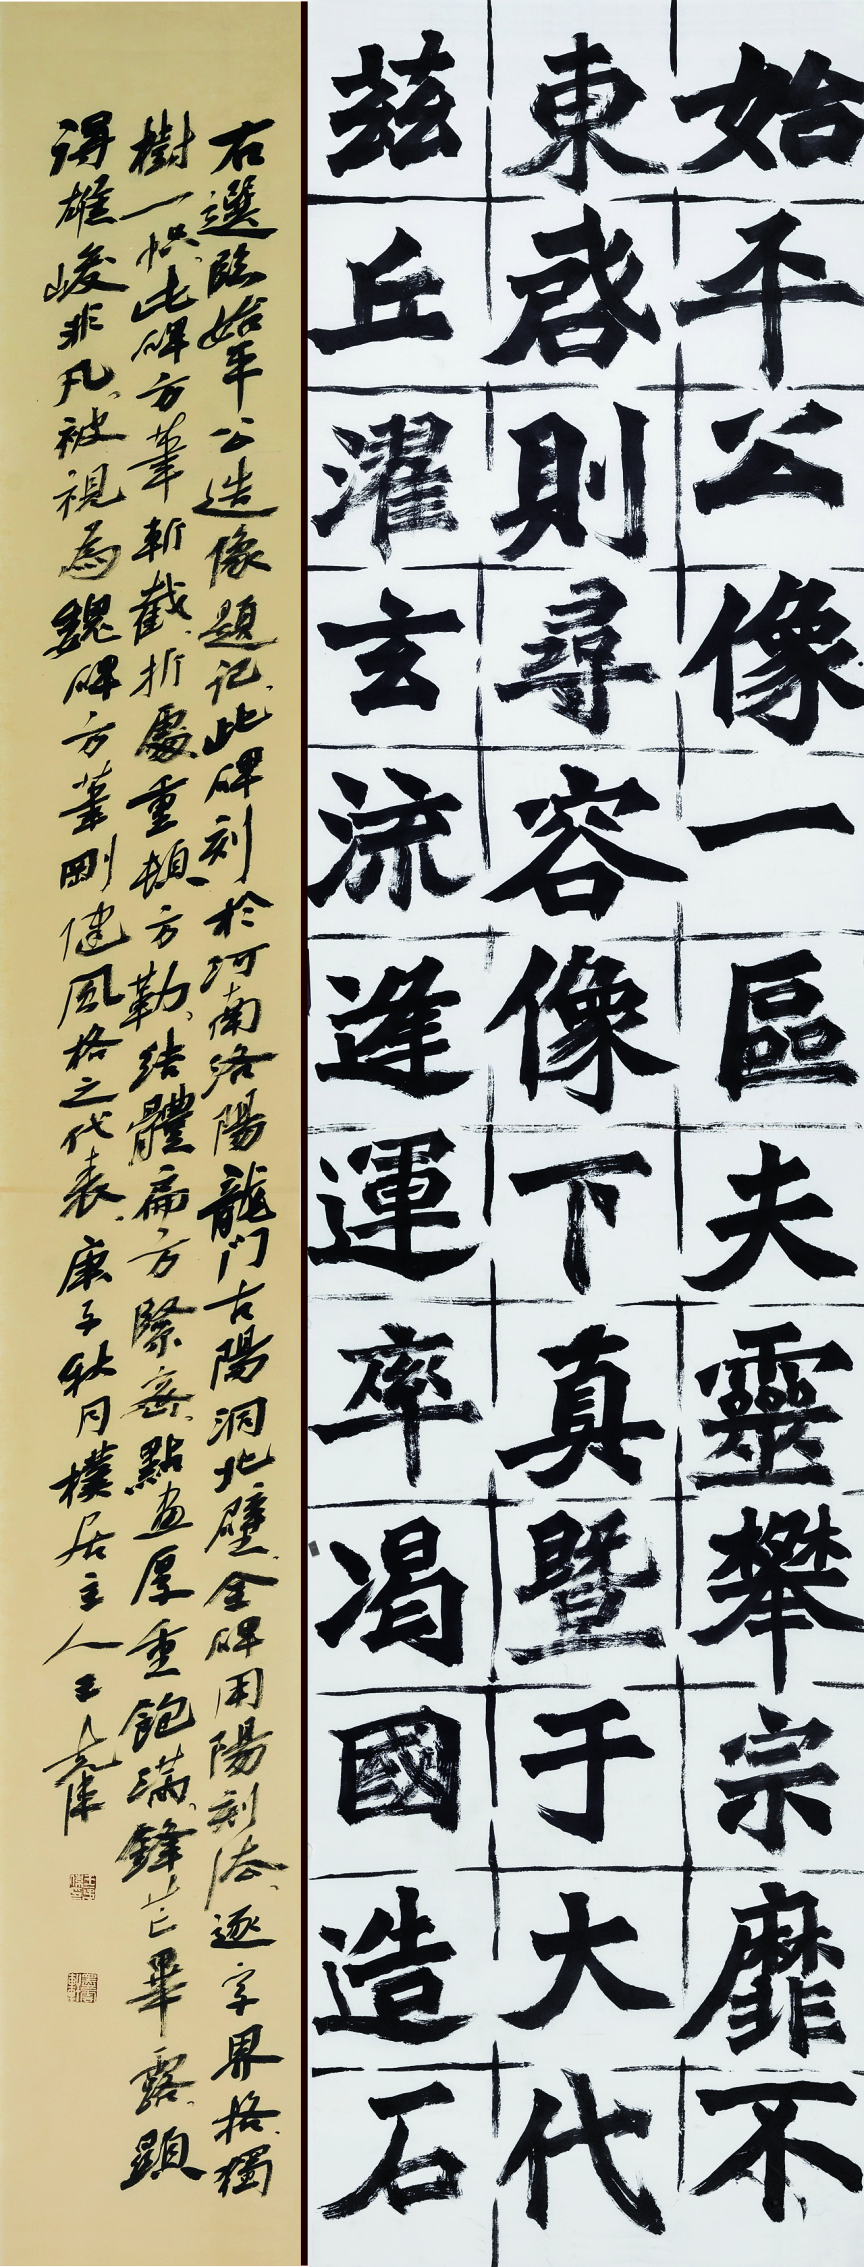 始平公像一區夫靈攀宗靡不
東啓則尋容像下真暨于大代
茲丘濯玄流逢運率渴國造石
右選臨始平公造像題記此碑刻於河南洛陽龍门古陽洞北壁全碑用陽刻法逐字界格獨
樹一幟此碑方筆斬截折處重頓方勒結體扁方緊密點畫厚重飽满鋒芒畢露顯
得雄峻非凡被視為魏碑方筆剛健風格之代表庚子秋月樸居主人王